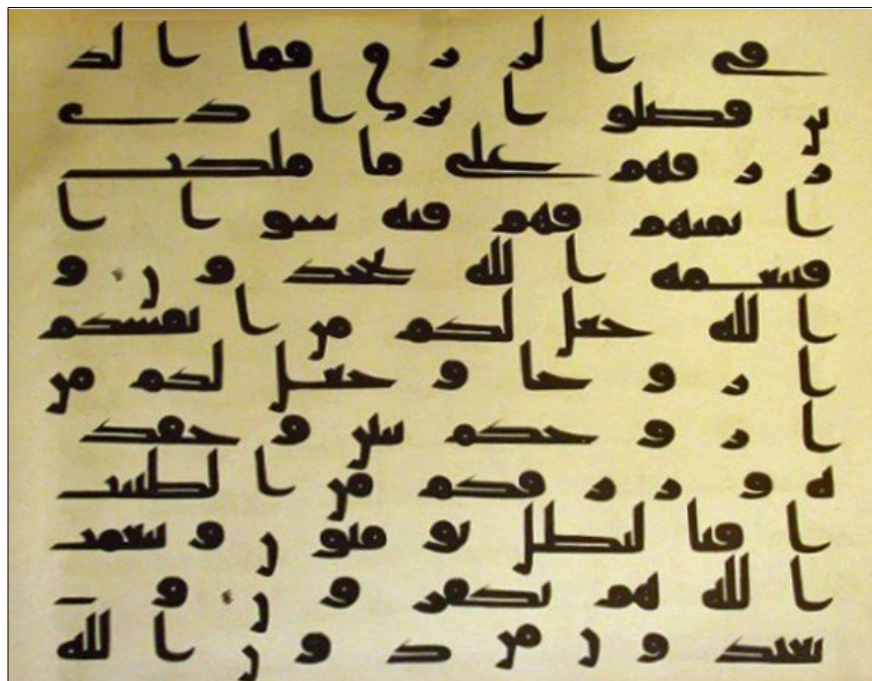 في الرزق فما الذ
ين فضلوا برادي
رزقهم على ما ملكت
ايمنهم فهم فيه سوا ا
فبنعمه الله يجحدون و
الله جعل لكم من انفسكم
ازوجا وجعل لكم من
ازوجكم بنين وحفد
ه ورزقكم من الطيبت
افبالبطل يومنون وبنعمت
الله هم يكفرون و
يعبدون من دون الله